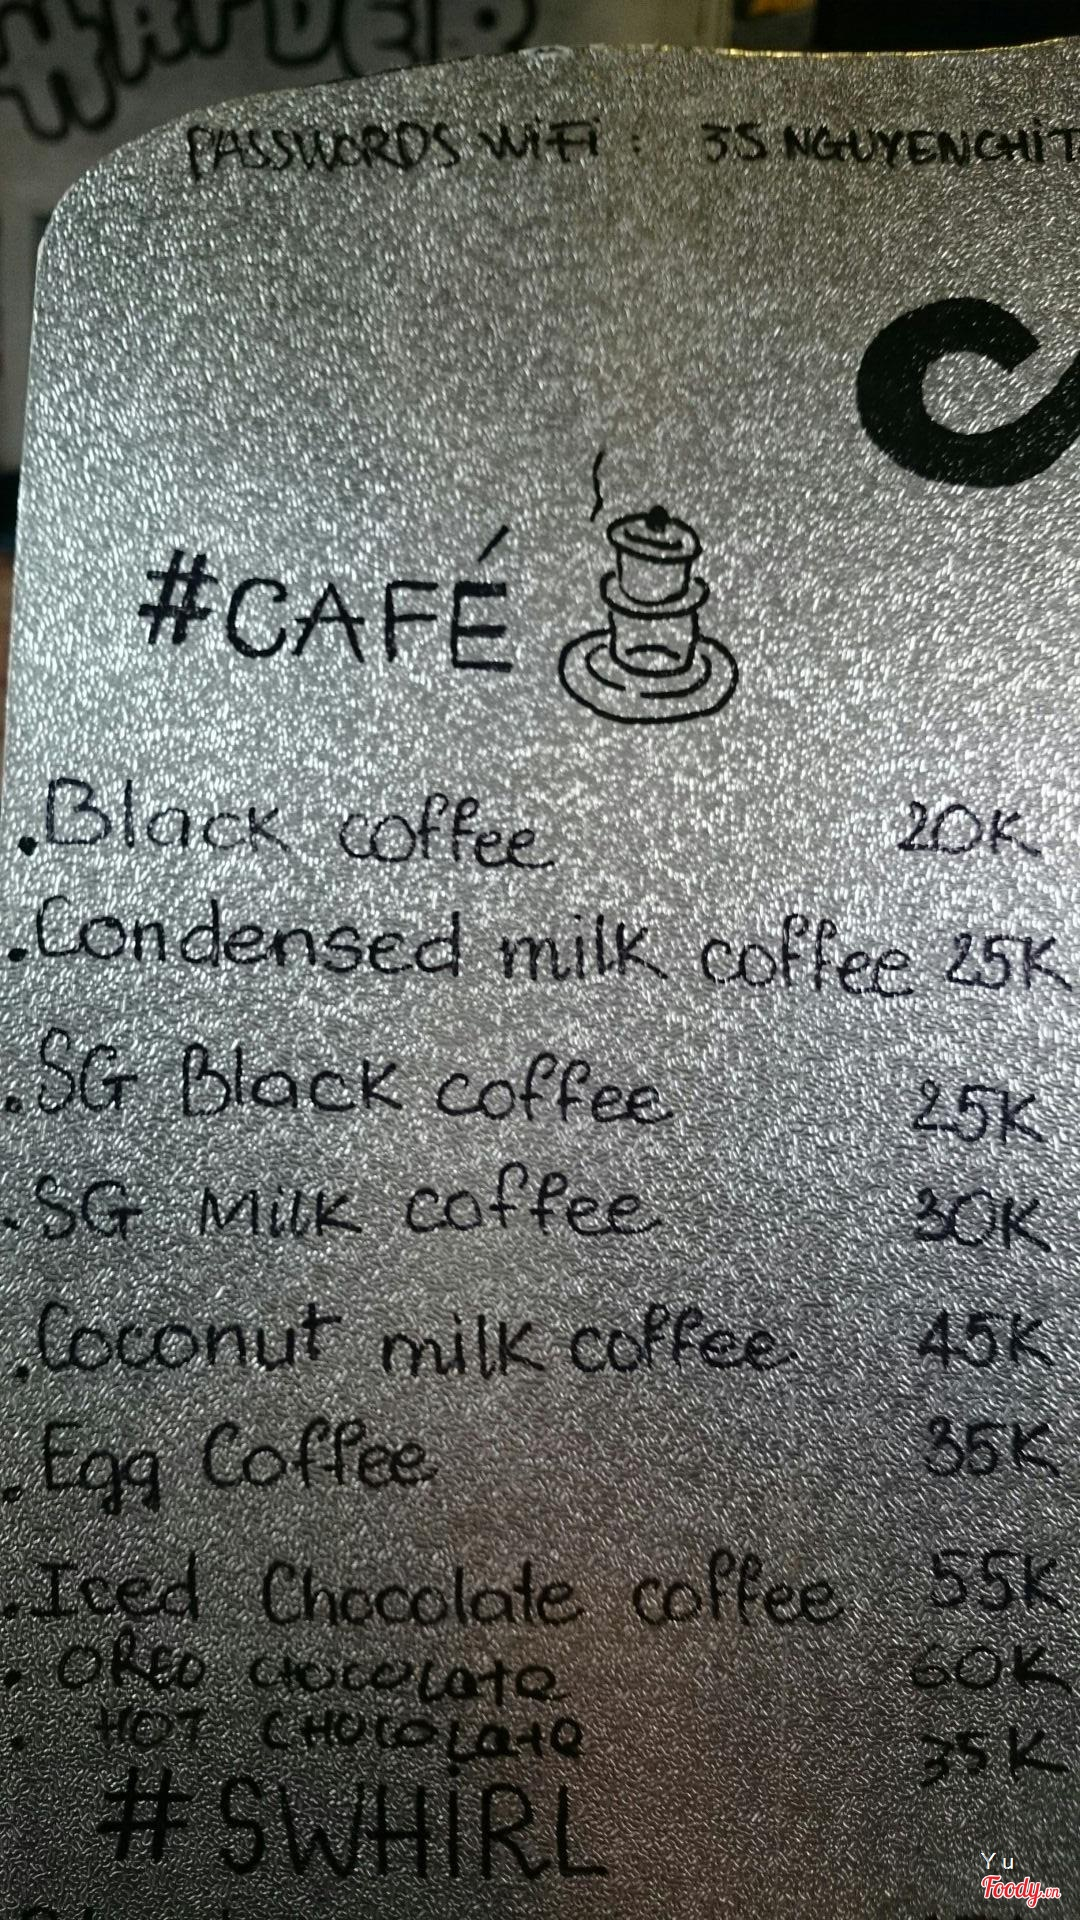 PASSWORDS WiFi : 35 NGUYENCHIT
#CAFÉ
.Black coffee 20K
.Condensed milk coffee 25K
.SG Black coffee 25K
.SG Milk coffee 30K
.Coconut milk coffee 45K
.Egg Coffee 35K
.Iced Chocolate coffee 55K
. OREO CHOCOLATE 60K
. HOT CHOCOLATE 35K
#SWHIRL
Yu
Foody.vn